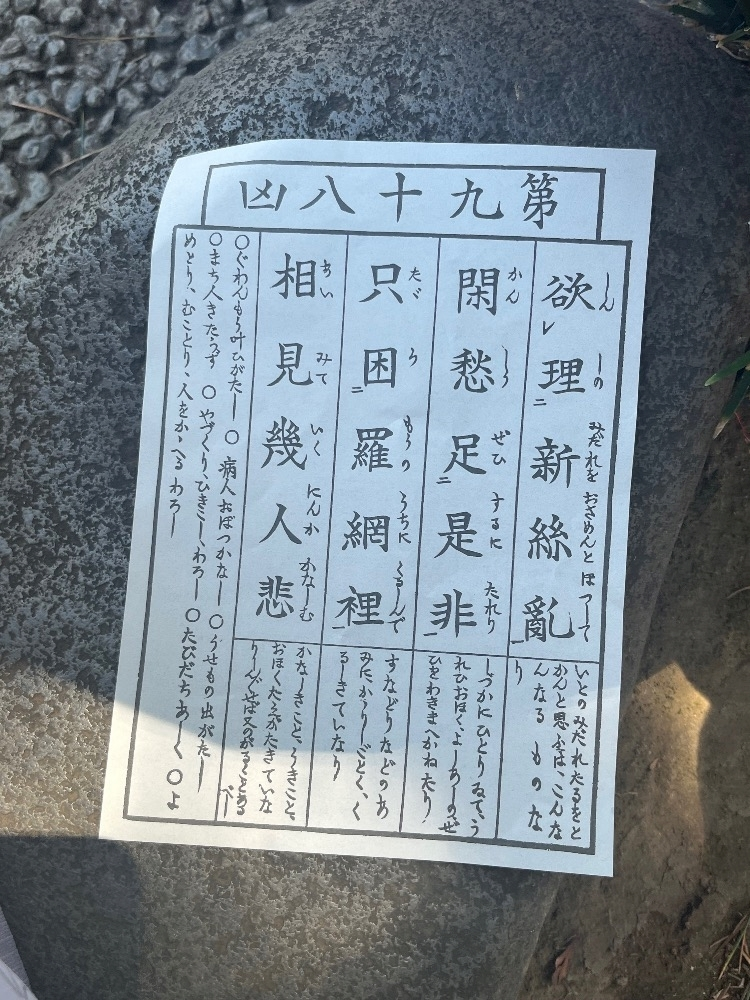 第九十八凶
欲理新絲亂
しん しの みだれを おさめんと ほつして
いとのみだれたるをと
かんと思ふは、こんな
んなる ものな
り
閑愁足是非
かん しう ぜひ するに たれり
しづかにひとりゐてう
れひおほく、よしあしのぜ
ひをわきまへかねたり
只困羅網裡
たゞ らもうの うちに くるしんで
すなどりなどのあ
みにかゝりしごとく、く
るしきていなり
相見幾人悲
あい みて いく にんか かなしむ
かなしきこと、うきこと、
おほくたえがたきていな
り
○ぐわんもう叶ひがたし ○病人おぼつかなし ○うせもの出がたし
○まち人きたらず ○やづくり、ひきこし、わろし ○たびだちあしく ○よ
めとり、むことり、人をかゝへる わろし